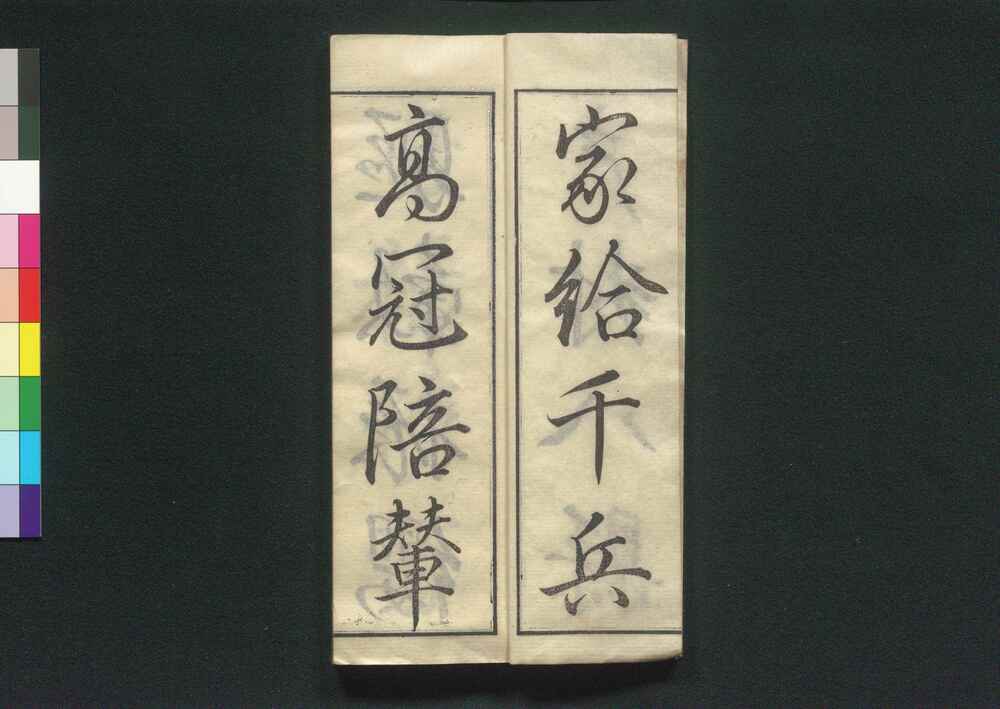 家給千兵
高冠陪輦